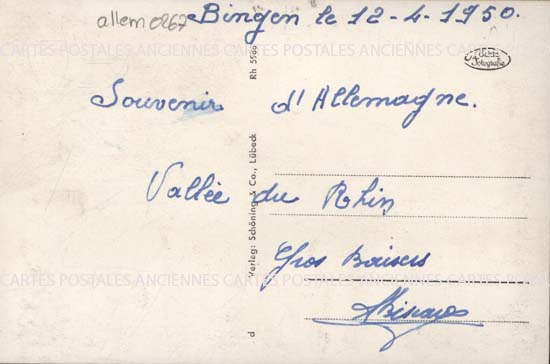 allem 0267
Bingen le 12-4-1950.
Souvenir d'Allemagne.
Vallée du Rhin
Gros Baisers
CARTES POSTALES ANCIENNES CARTES POSTALES ANCIENNES CARTES POSTALES ANCIENNES
CARTES POSTALES ANCIENNES CARTES POSTALES ANCIENNES CARTES POSTALES ANCIENNES
d Verlag: Schöning & Co., Lübeck Rh 5566
Fotografie